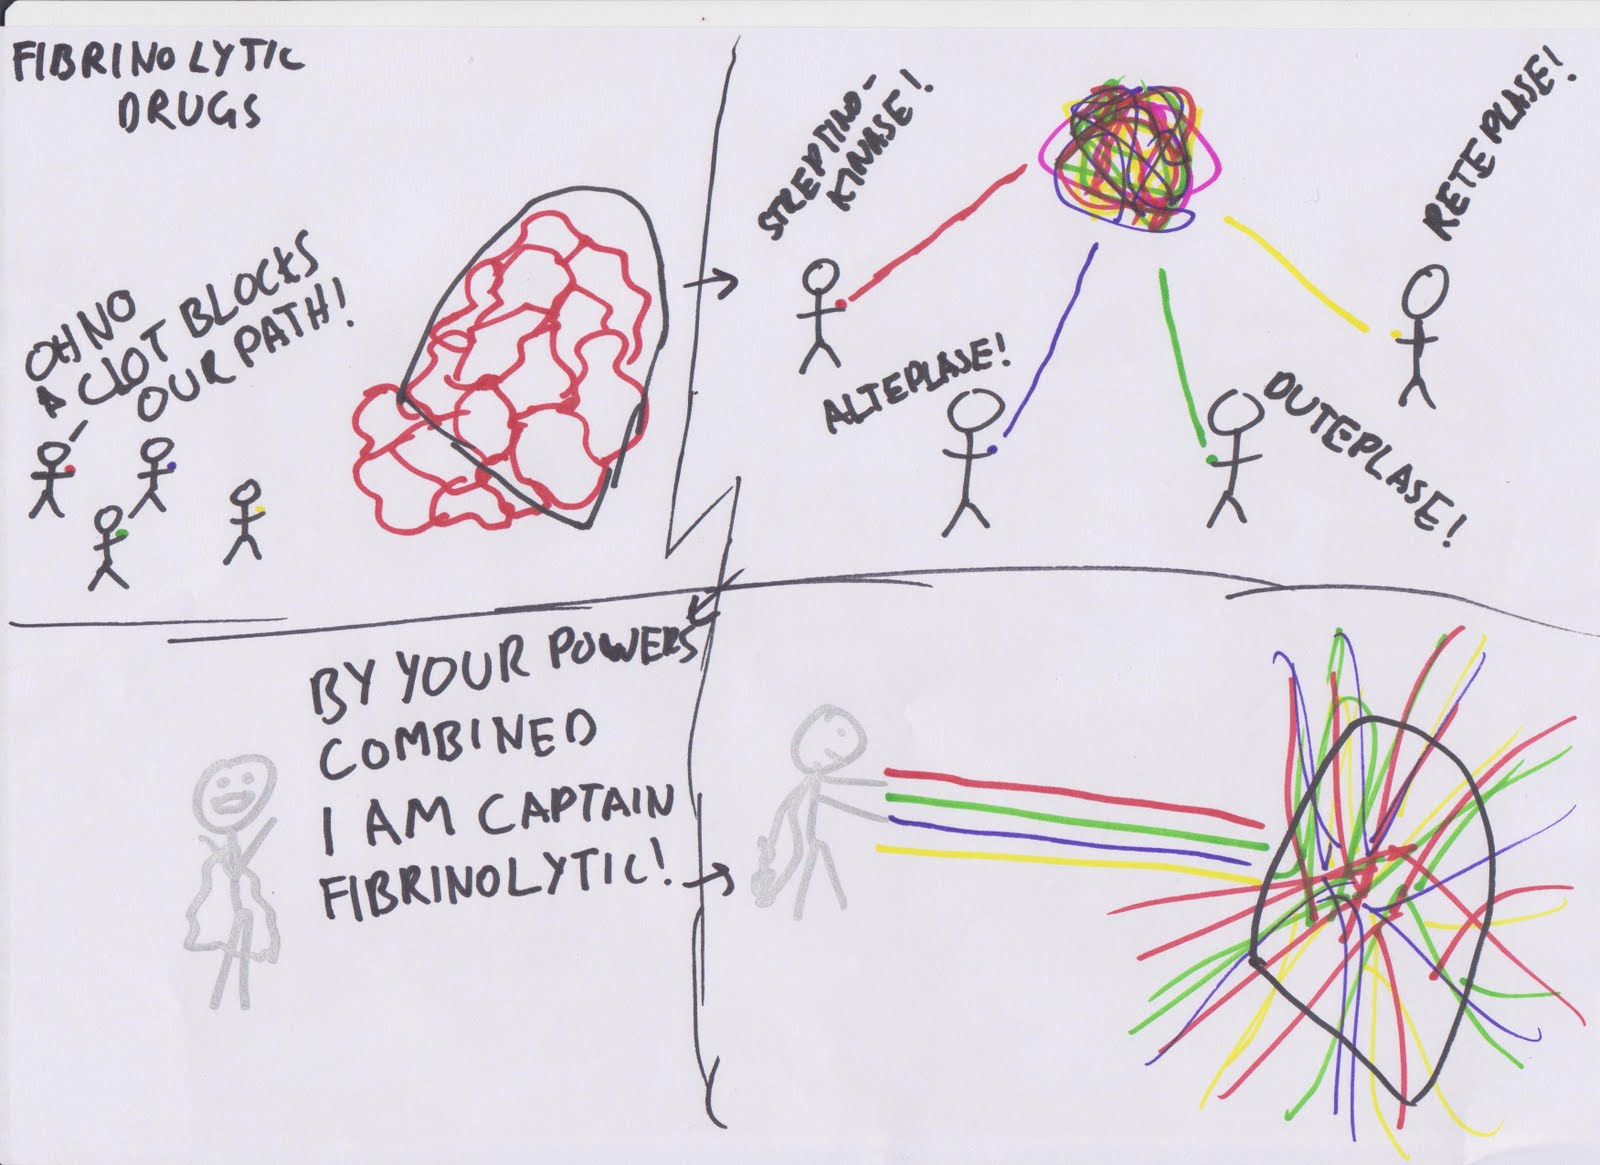 FIBRINOLYTIC
DRUGS
OH NO
A CLOT BLOCKS
OUR PATH!
STREPTINO-
KINASE!
ALTEPLASE!
DUTEPLASE!
RETEPLASE!
BY YOUR POWERS
COMBINED
I AM CAPTAIN
FIBRINOLYTIC!